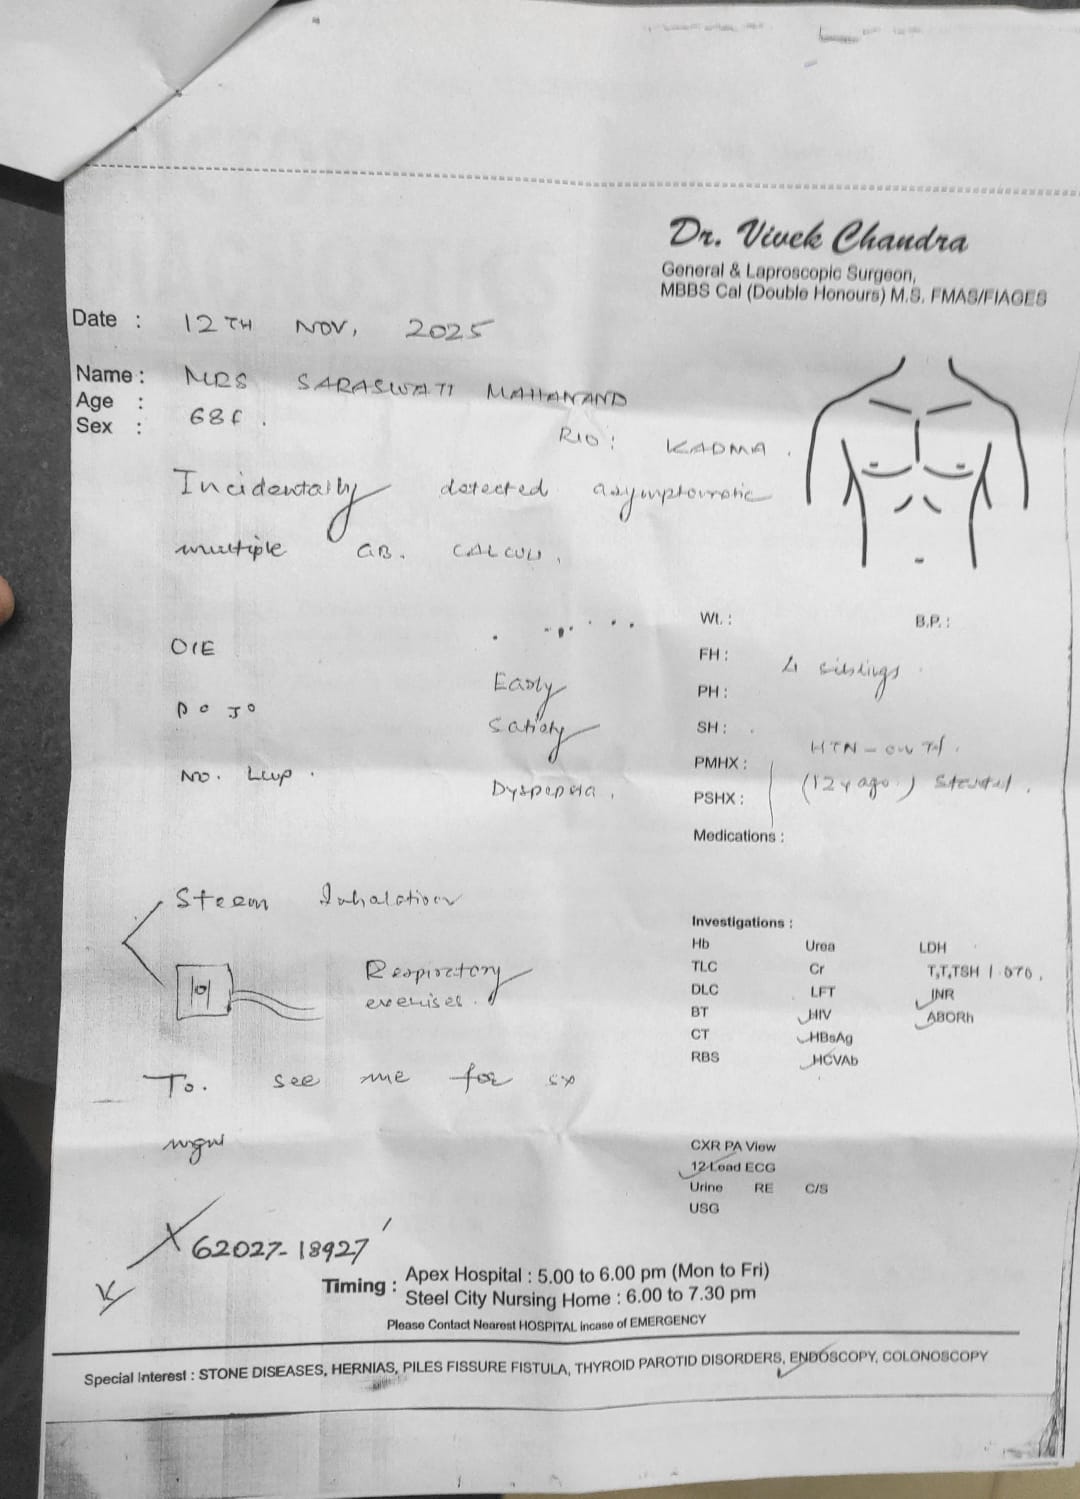 Dr. Vivek Chandra
General & Laproscopic Surgeon,
MBBS Cal (Double Honours) M.S. FMAS/FIAGES
Date : 12TH NOV, 2025
Name : MRS SARASWATI MAHANAND
Age :
Sex : 68 f.
R/O : KADMA.
Incidentally detected asymptomatic
multiple GB. CALCULI.
Wt. : B.P. :
O/E
FH : 4 siblings.
Early
PH :
P° J°
Satiety
SH :
HTN - on
PMHX :
NO. Lump.
Dyspepsia.
PSHX : (12 y ago.) Started.
Medications :
Steam Inhalation
Investigations :
Hb Urea LDH
TLC Cr T,T,TSH
DLC LFT INR
BT HIV ABORh
CT HBsAg
RBS HCVAb
Respiratory
exercises.
To. see me for sx
mgm
CXR PA View
12 Lead ECG
Urine RE C/S
USG
62027-18927
Timing : Apex Hospital : 5.00 to 6.00 pm (Mon to Fri)
Steel City Nursing Home : 6.00 to 7.30 pm
Please Contact Nearest HOSPITAL incase of EMERGENCY
Special Interest : STONE DISEASES, HERNIAS, PILES FISSURE FISTULA, THYROID PAROTID DISORDERS, ENDOSCOPY, COLONOSCOPY